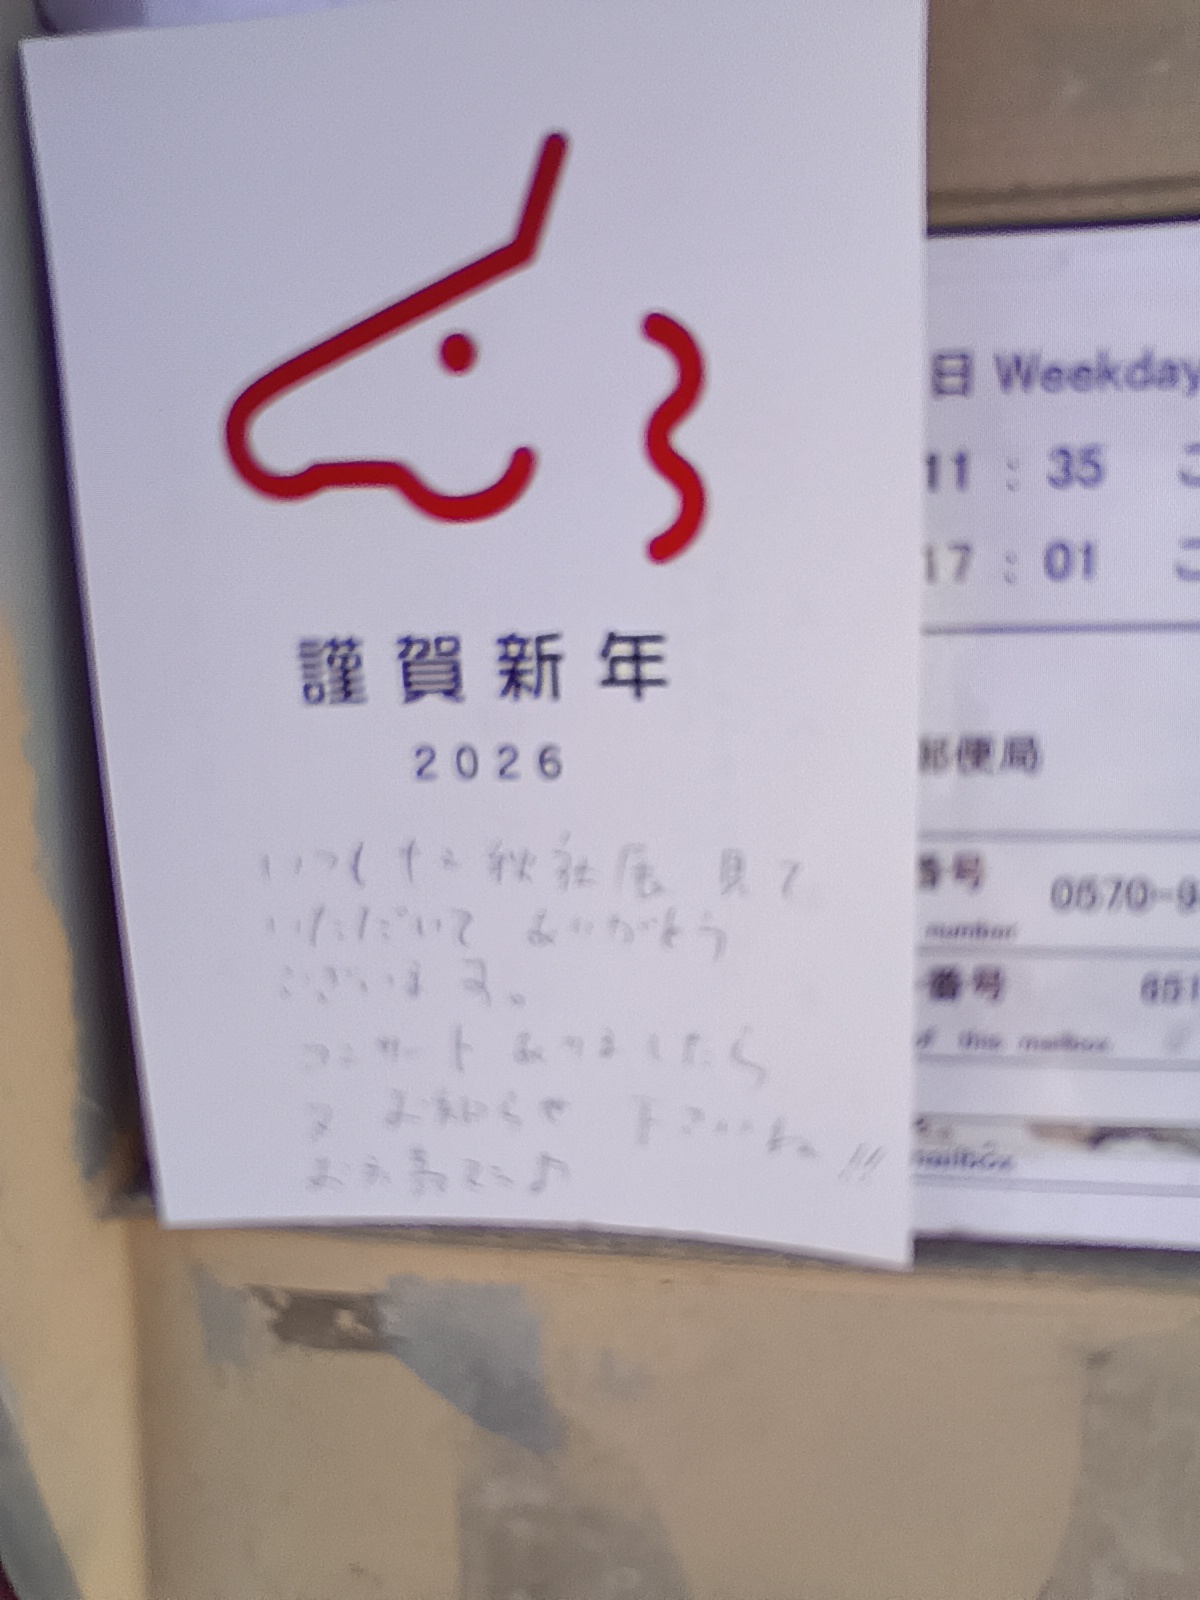 謹賀新年
2026
見て
いただいて ありがとう
ございます。
コンサート ありましたら
お知らせ 下さいね!!!
日 Weekday
11:35
17:01
郵便局
番号 0570-9
number
番号 651
of this mailbox
mailbox